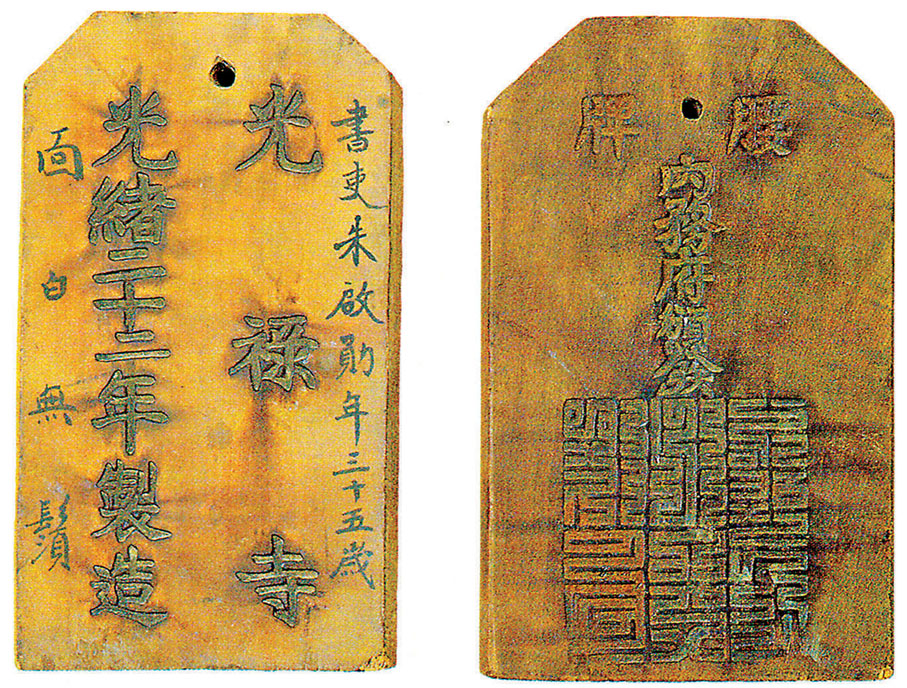 書吏朱啟勛年三十五歲
光禄寺
光緒二十二年製造
面白無鬚
腰牌
内務府頒發